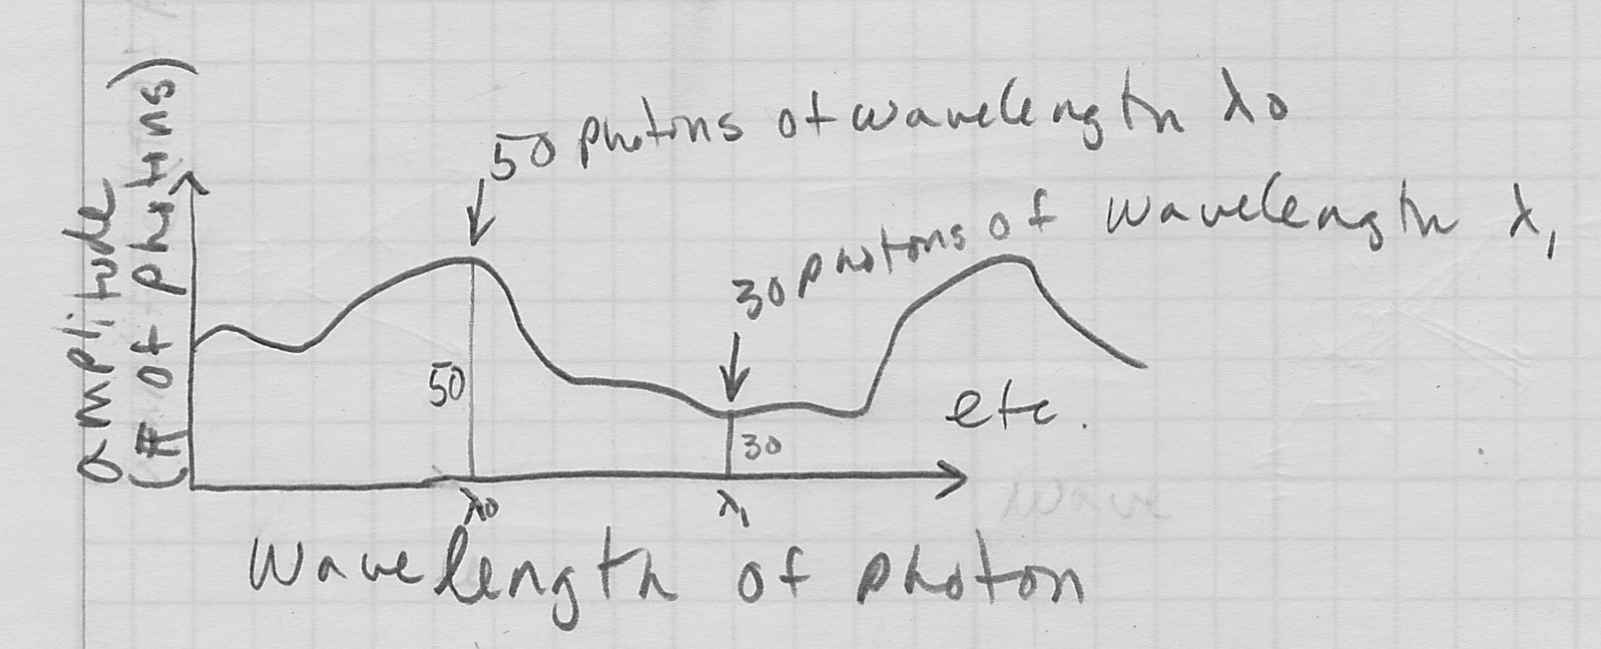 amplitude
(# of photons)
50 photons of wavelength λ0
30 photons of wavelength λ1
50
30
etc.
λ0
λ1
wavelength of photon